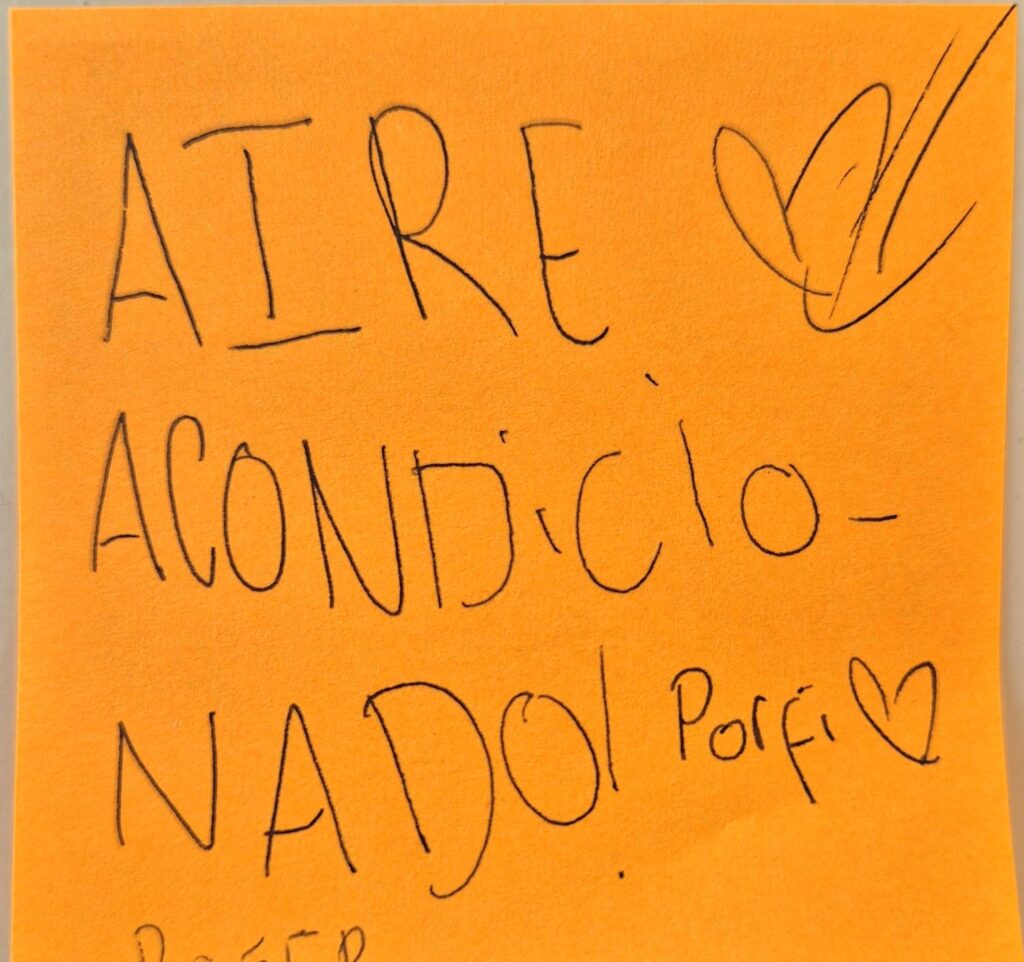 AIRE
ACONDICIO-
NADO! Porfi